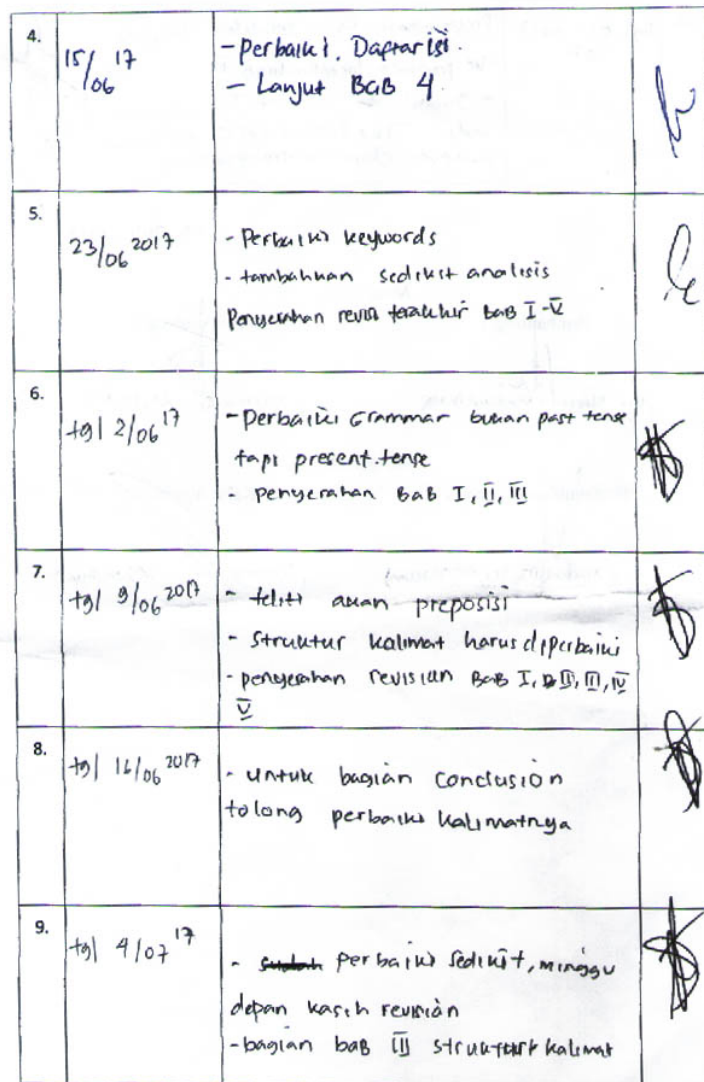 4.
15/06 17
- Perbaiki. Daftar isi.
- Lanjut BAB 4
5.
23/06 2017
- Perbaiki keywords
- tambahkan sedikit analisis
Penyerahan revisi terakhir BAB I-V
6.
tgl 2/06 17
- Perbaiki Grammar bukan past tense
tapi present tense
- penyerahan BAB I, II, III
7.
tgl 9/06 2017
- teliti akan preposisi
- Struktur kalimat harus diperbaiki
- penyerahan revisian BAB I, II, III, IV
V
8.
tgl 16/06 2017
- untuk bagian conclusion
tolong perbaiki kalimatnya
9.
tgl 4/07 17
- sudah perbaiki sedikit, minggu
depan kasih revisian
- bagian bab III struktur kalimat